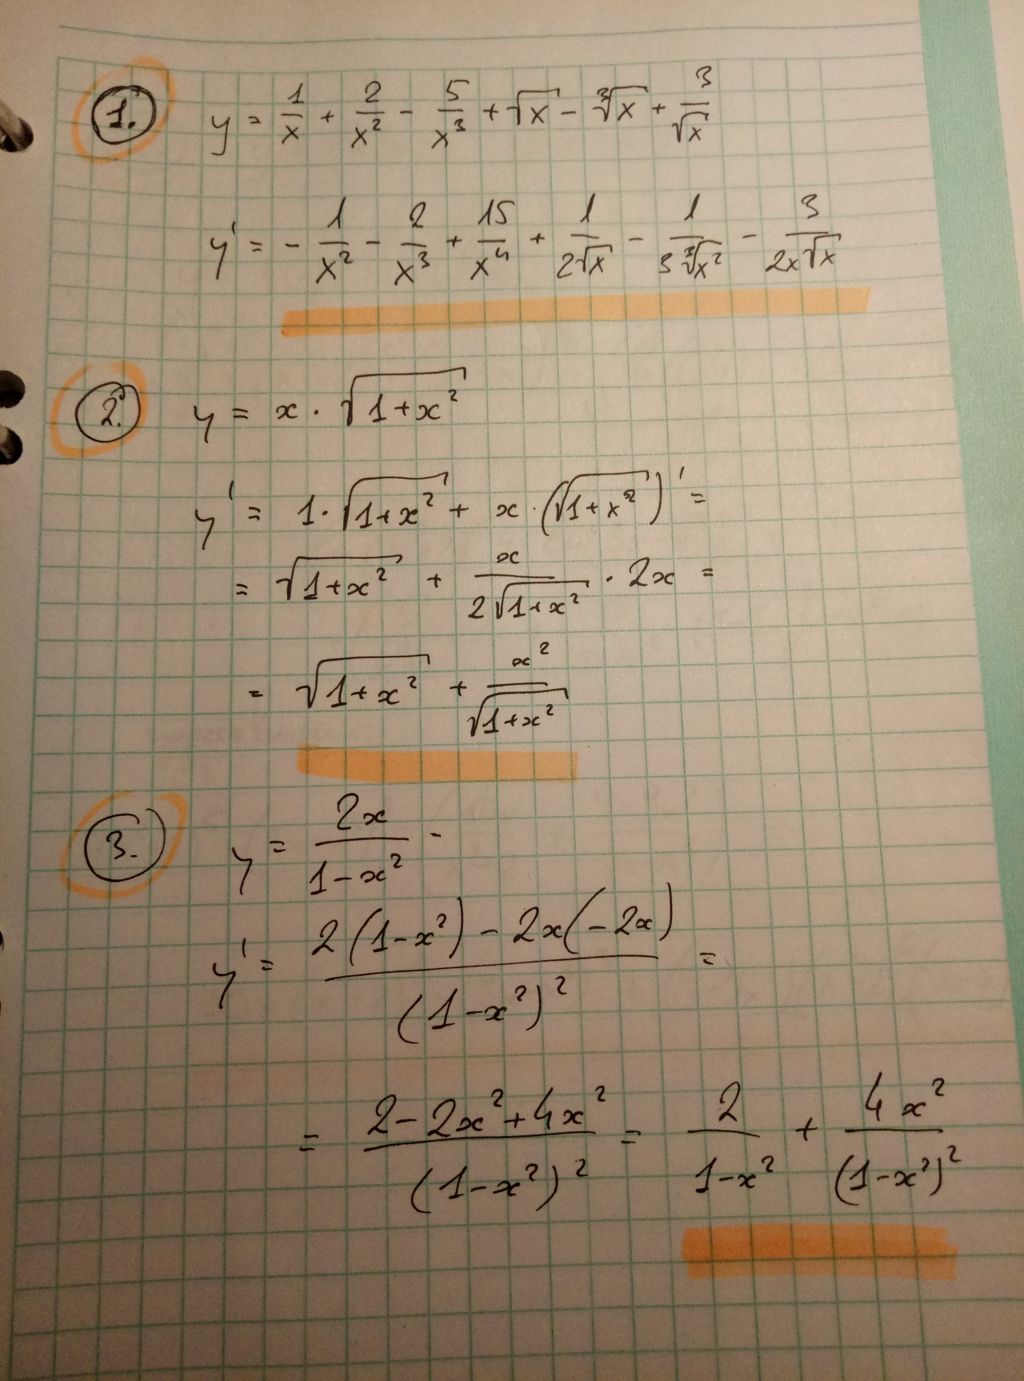 1. y = 1/x + 2/x² - 5/x³ + √x - ∛x + 3/√x
y' = - 1/x² - 2/x³ + 15/x⁴ + 1/(2√x) - 1/(3∛x²) - 3/(2x√x)
2. y = x · √(1+x²)
y' = 1·√(1+x²) + x·(√(1+x²))' =
= √(1+x²) + x/(2√(1+x²)) · 2x =
= √(1+x²) + x²/√(1+x²)
3. y = 2x/(1-x²) -
y' = (2(1-x²) - 2x(-2x))/(1-x²)² =
= (2-2x²+4x²)/(1-x²)² = 2/(1-x²) + 4x²/(1-x²)²